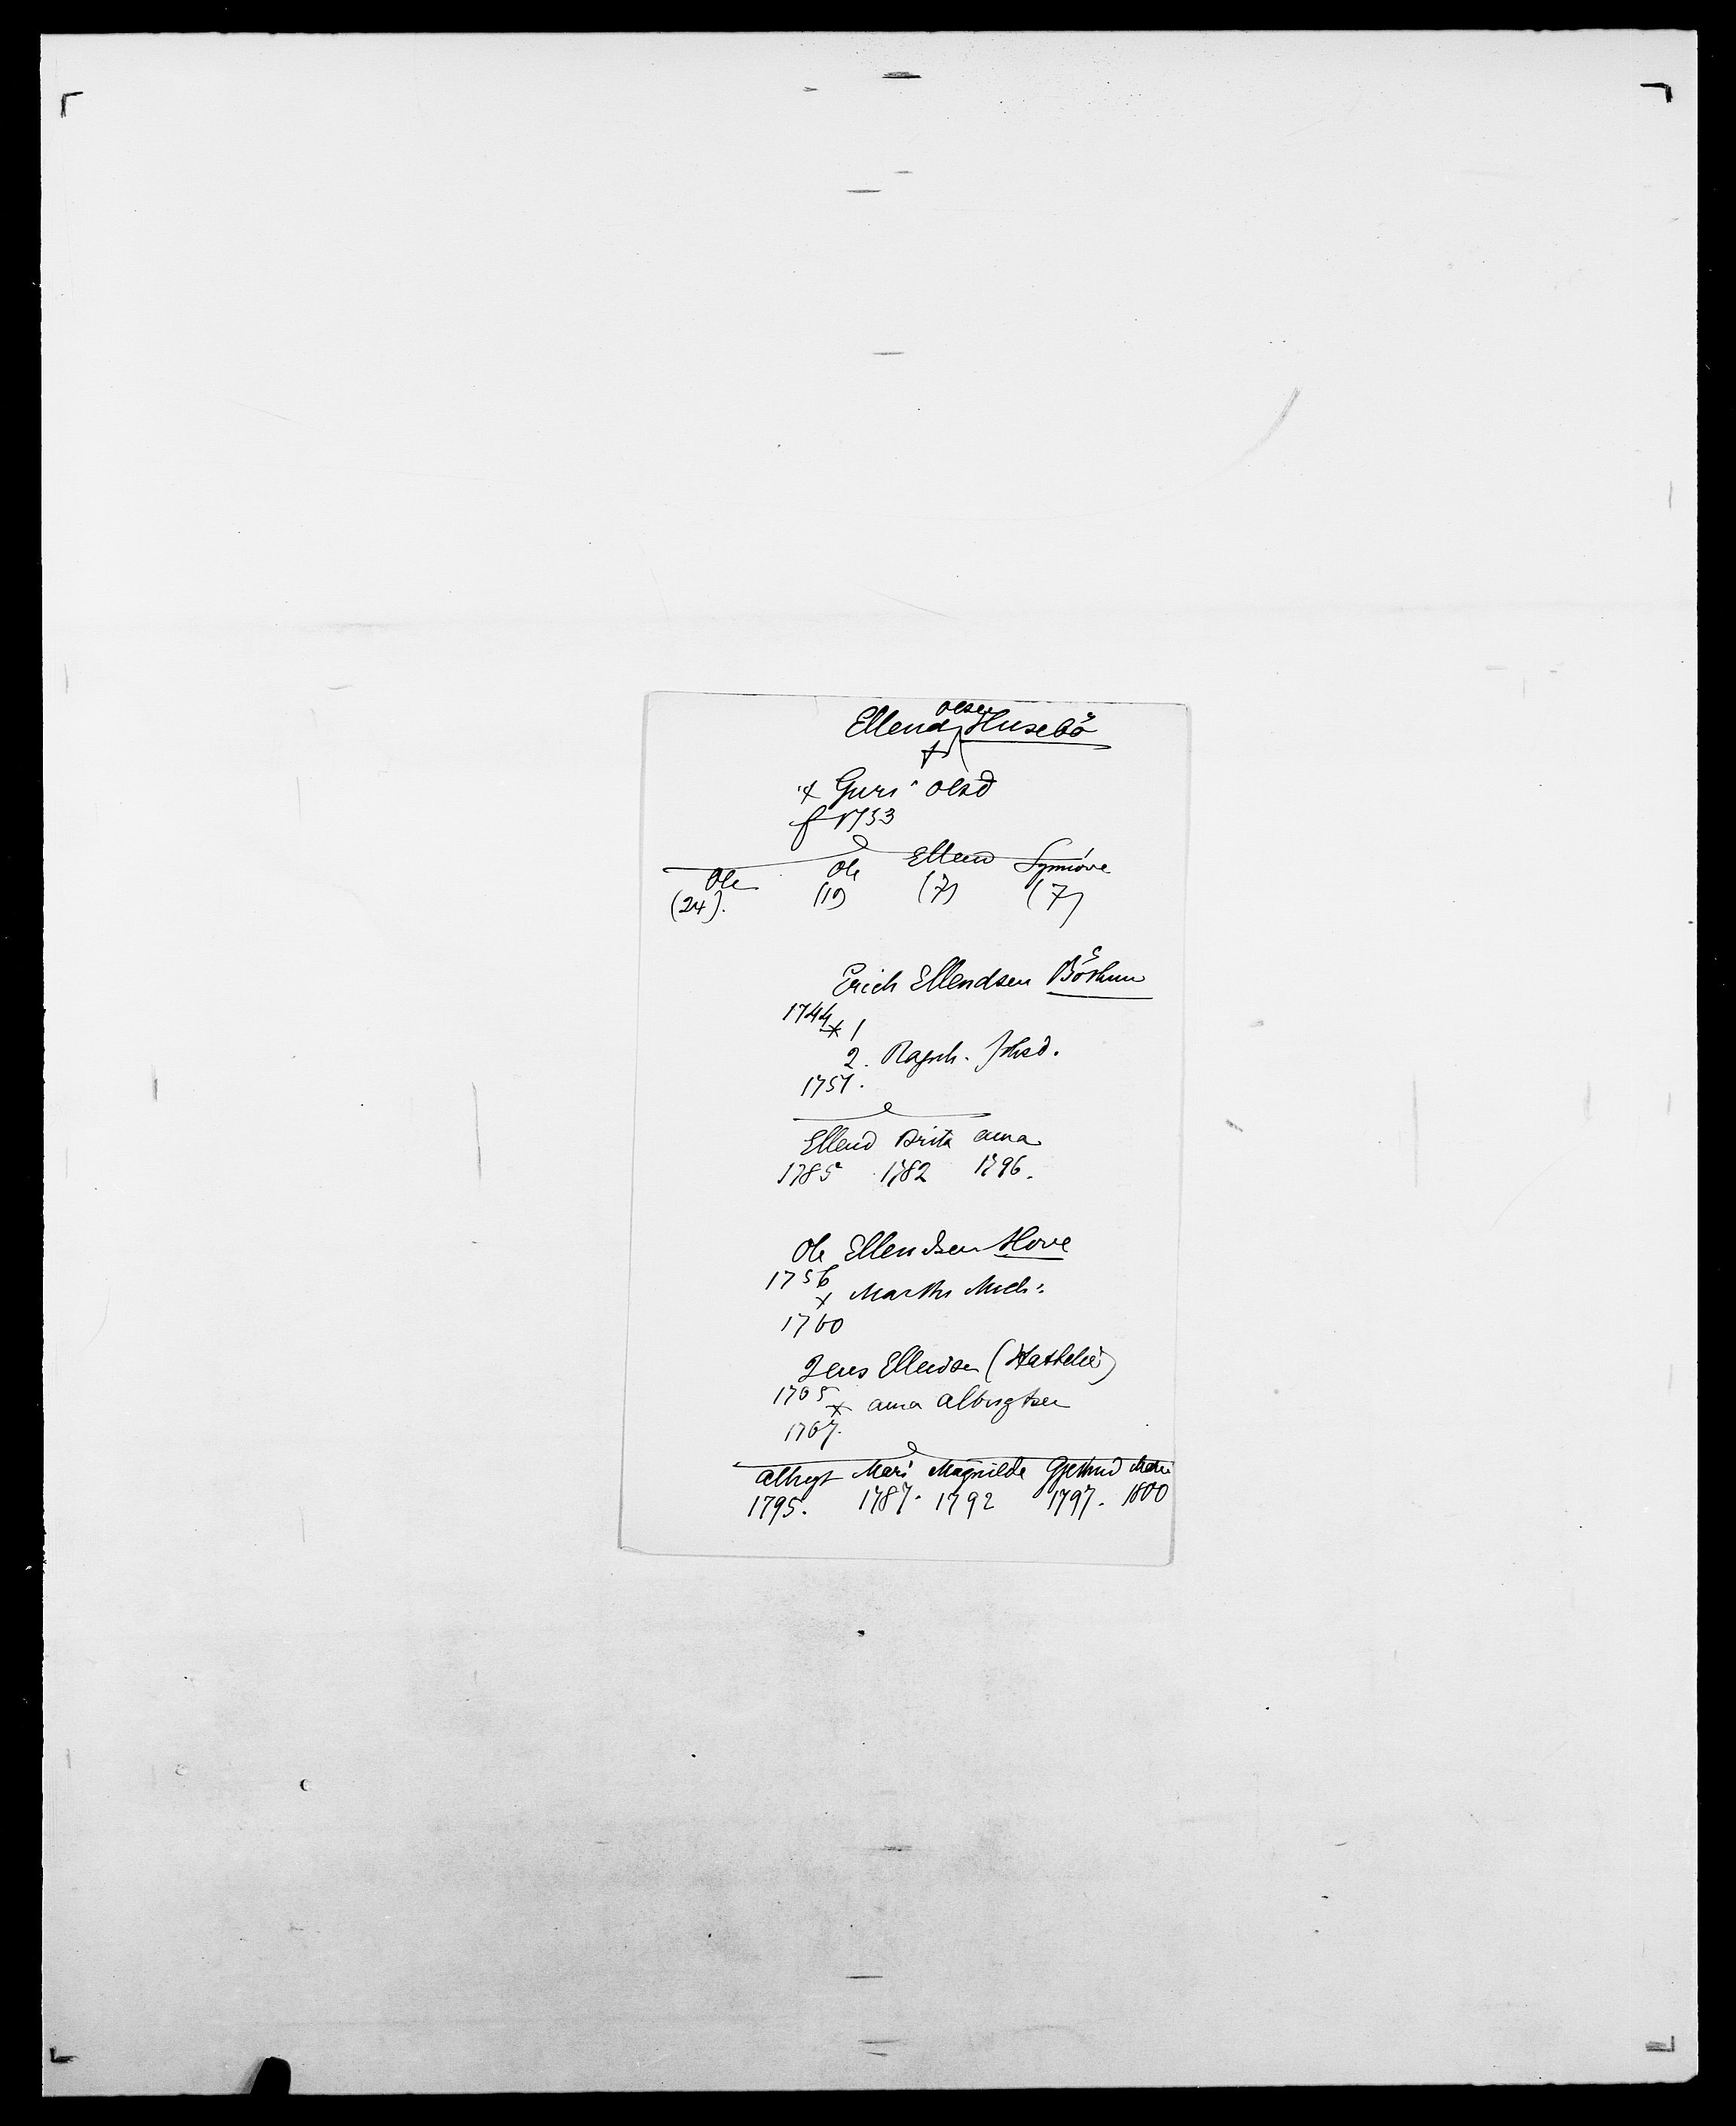 Olsen
Ellend Husebö
+
x Guri Olsd
f 1733
Ole Ole Ellend Synnöve
(24). (19) (7) (7)
Erich Ellendsen
1744
x 1
2. Ragnh. Johsd.
1751.
Ellend Brita Anna
1785 1782 1796.
Ole Ellendsen Hove
1756
x Martha Mich:
1760
Jens Ellendsen
1765
x Anna Albrigtsen
1767.
Albrigt Mari Magnilde Gjertrud
1795. 1787. 1792 1797. 1800